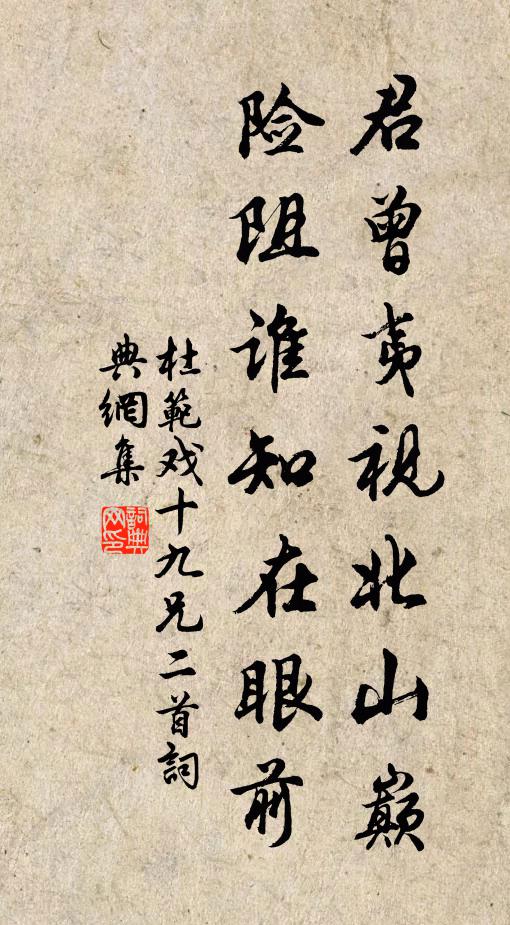 君曾夷视北山巅
险阻谁知在眼前
杜範戏十九兄二首詞
典網集
詞典网印